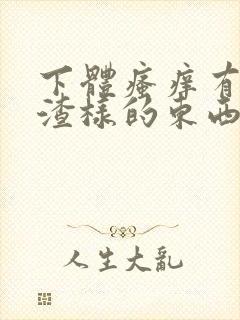 下體瘙癢有
渣樣的東西
人生大亂